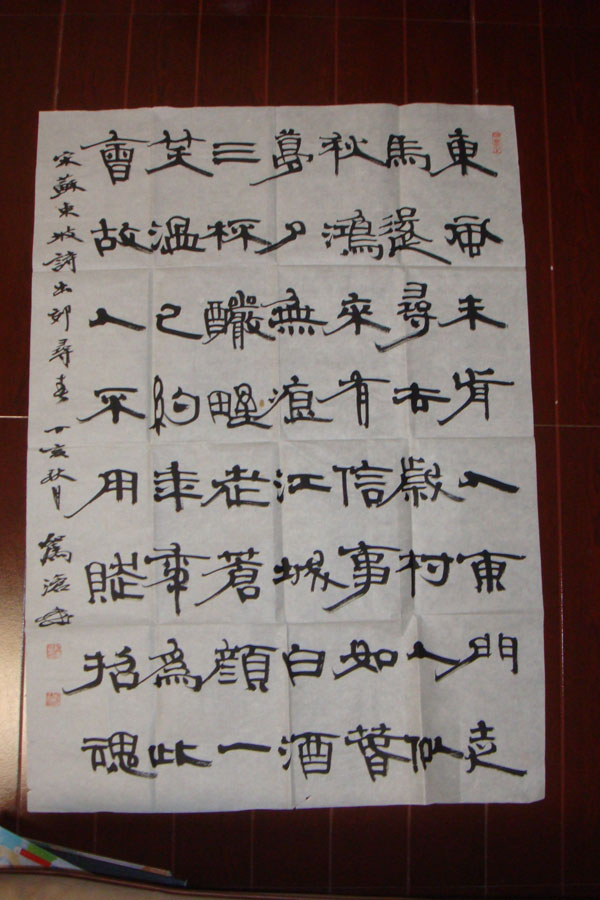 東風未肯入東門走
馬還尋去歲村人似
秋鴻來有信事如春
夢了無痕江城白酒
三杯釅野老蒼顏一
笑溫已約年年為此
會故人不用賦招魂
宋蘇東坡詩出郊尋春 丁亥秋月